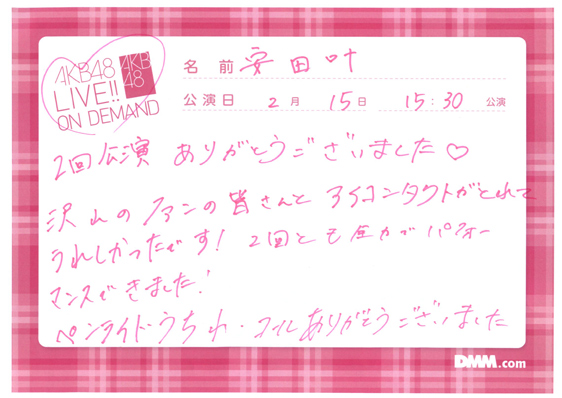 AKB48
LIVE!!
ON DEMAND
AKB
48
名前 安田叶
公演日 2月 15日 15:30 公演
2回公演 ありがとうございました♡
沢山のファンの皆さんと アイコンタクトがとれて
うれしかったです! 2回とも全力でパフォー
マンスできました!
ペンライト・うちわ・コールありがとうございました
DMM.com